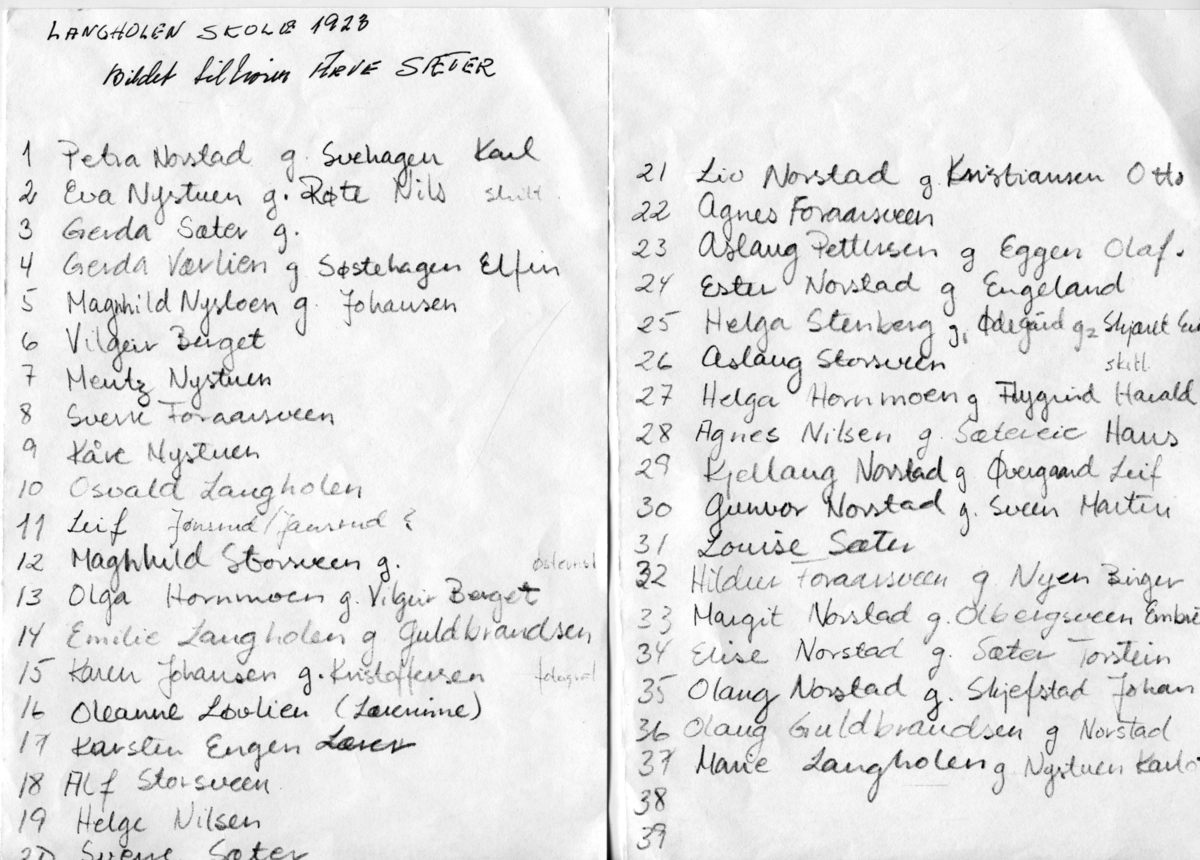 LANGHOLEN SKOLE 1923
Bildet tilhører ARVE SÆTER
1 Petra Norstad g. Svehagen Karl
2 Eva Nystuen g. Røte Nils skilt
3 Gerda Sæter g.
4 Gerda Værlien g Søstehagen Elfin
5 Maghhild Nysloen g. Johansen
6 Vilgeir Berget
7 Mentz Nystuen
8 Sverre Foraarsveen
9 Kåre Nystuen
10 Osvald Langholen
11 Leif Jønsrud/Jamsrud ?
12 Maghhild Storsveen g.
13 Olga Hornmoen g. Vilgeir Berget
14 Emilie Langholen g Guldbrandsen
15 Karen Johansen g. Kristoffersen fotograf
16 Oleanne Lovlien (Lærerinne)
17 Karsten Engen Lærer
18 Alf Storsveen
19 Helge Nilsen
20 Sverre Sæter
21 Liv Norstad g. Kristiansen Otto
22 Agnes Foraarsveen
23 Aslaug Pettersen g Eggen Olaf.
24 Ester Norstad g Engeland
25 Helga Stenberg g1 Ødegård g2 Skjæret
26 Aslaug Storsveen skilt
27 Helga Hornmoen g Flygind Harald
28 Agnes Nilsen g. Sætereie Hans
29 Kjellaug Norstad g Øvergaard Leif
30 Gunvor Norstad g. Sveen Martin
31 Louise Sæter
32 Hildur Foraarsveen g Nyen Birger
33 Margit Norstad g. Olbergsveen Embrie
34 Elise Norstad g. Sæter Torstein
35 Olaug Norstad g. Skjefstad Johan
36 Olaug Guldbrandsen g Norstad
37 Marie Langholen g Nystuen Karlo
38
39